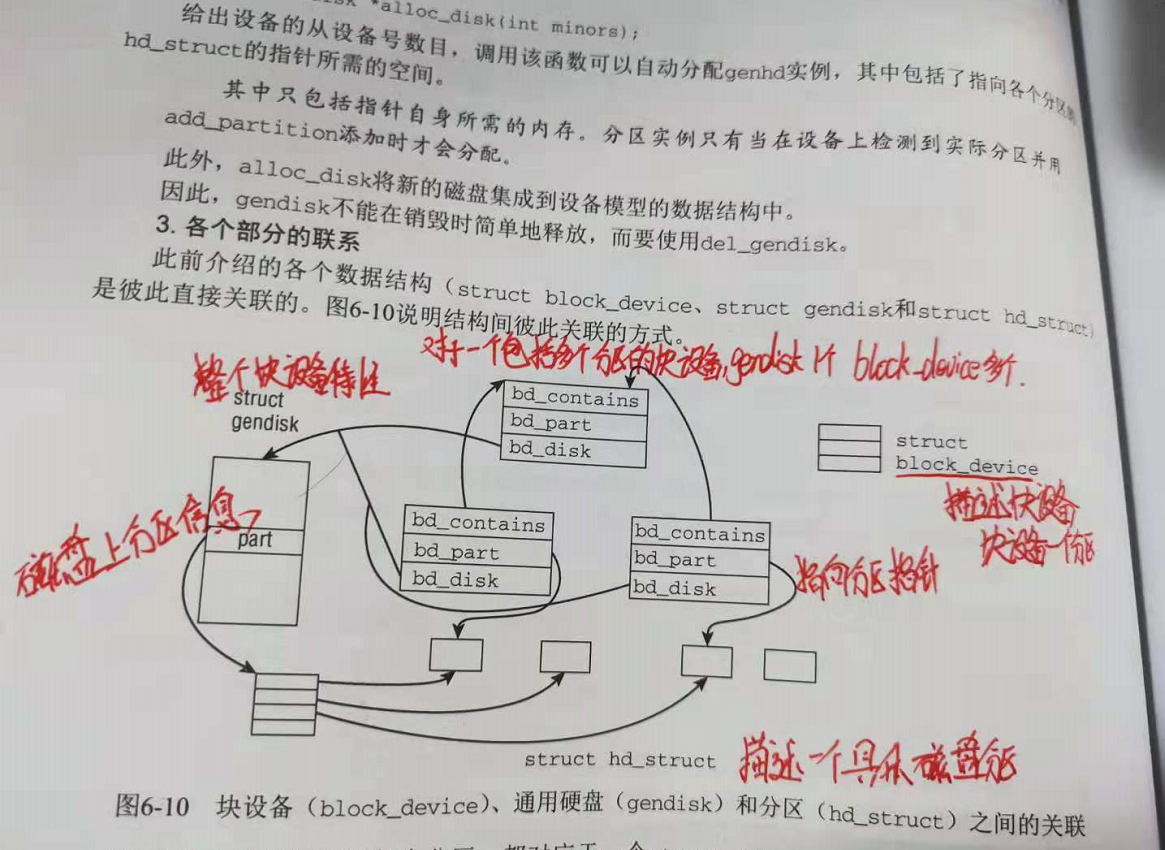 *alloc_disk(int minors);
给出设备的从设备号数目，调用该函数可以自动分配genhd实例，其中包括了指向各个分区
hd_struct的指针所需的空间。
其中只包括指针自身所需的内存。分区实例只有当在设备上检测到实际分区并用
add_partition添加时才会分配。
此外，alloc_disk将新的磁盘集成到设备模型的数据结构中。
因此，gendisk不能在销毁时简单地释放，而要使用del_gendisk。
3. 各个部分的联系
此前介绍的各个数据结构（struct block_device、struct gendisk和struct hd_struct）
是彼此直接关联的。图6-10说明结构间彼此关联的方式。
对于一个包括多个分区的块设备,gendisk 1个 block_device多个.
整个块设备特性
struct
gendisk
bd_contains
bd_part
bd_disk
struct
block_device
描述块设备
块设备一份区
磁盘上分区信息
part
bd_contains
bd_part
bd_disk
bd_contains
bd_part
bd_disk
指向分区指针
struct hd_struct
描述一个具体磁盘分区
图6-10 块设备（block_device）、通用硬盘（gendisk）和分区（hd_struct）之间的关联